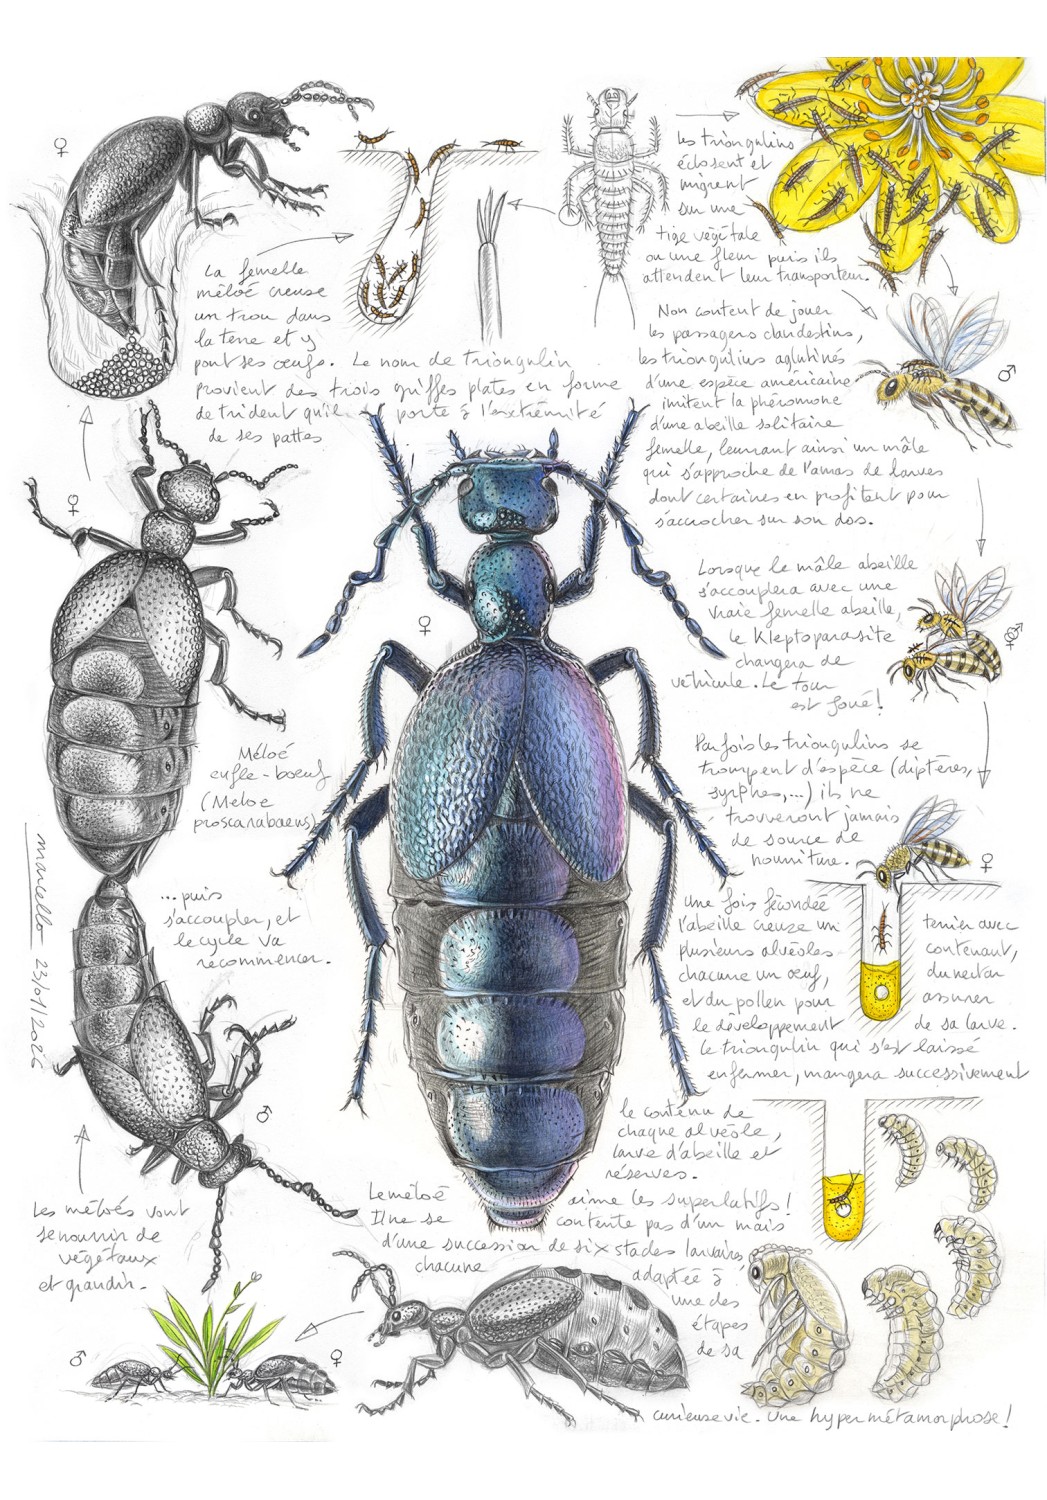 La femelle
méloé creuse
un trou dans
la terre et y
pont ses œufs. Le nom de triongulin
provient des trois griffes plates en forme
de trident qu'il porte à l'extrémité
de ses pattes
les triongulins
éclosent et
migrent
sur une
tige végétale
ou une fleur puis ils
attendent leur transporteur.
Non content de jouer
les passagers clandestins,
les triongulins aglutinés
d'une espèce américaine
imitent la phéromone
d'une abeille solitaire
femelle, leurrant ainsi un mâle
qui s'approche de l'amas de larves
dont certaines en profitent pour
s'accrocher sur son dos.
Lorsque le mâle abeille
s'accouplera avec une
vraie femelle abeille,
le Kleptoparasite
changera de
véhicule. Le tour
est joué!
Parfois les triongulins se
trompent d'espèce (diptères,
syrphes,...) ils ne
trouveront jamais
de source de
nourriture.
Une fois fécondée
l'abeille creuse un
plusieurs alvéoles
chacune un œuf,
et du pollen pour
le développement
terrier avec
contenant,
du nectar
assurer
de sa larve.
Le triongulin qui s'est laissé
enfermer, mangera successivement
le contenu de
chaque alvéole,
larve d'abeille et
réserves.
Le méloé aime les superlatifs!
Il ne se contente pas d'un mais
d'une succession de six stades larvaires,
chacune adaptée à
une des
étapes
de sa
curieuse vie. Une hypermétamorphose!
Les méloés vont
se nourrir de
végétaux
et grandir.
...puis
s'accoupler, et
le cycle va
recommencer.
Méloé
enfle-boeuf
(Meloe
proscarabaeus)
marcello 23/01/2026